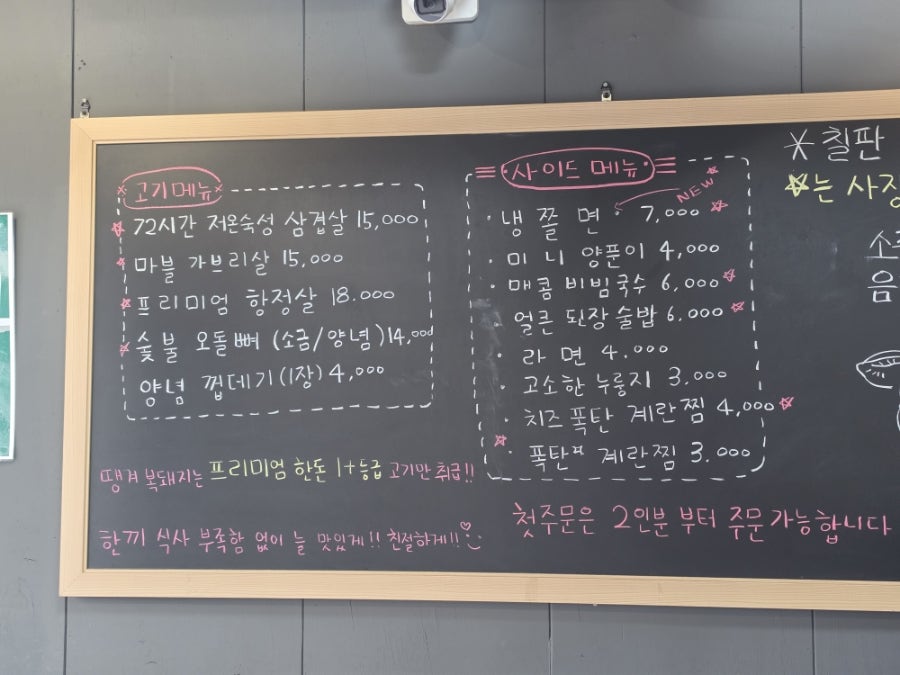 고기메뉴
72시간 저온숙성 삼겹살 15,000
마블 가브리살 15,000
프리미엄 항정살 18.000
숯불 오돌뼈 (소금/양념) 14,000
양념 껍데기 (1장) 4,000
땡겨 복돼지는 프리미엄 한돈 1+등급 고기만 취급!!
한끼 식사 부족함 없이 늘 맛있게!! 친절하게!!
사이드 메뉴
NEW
냉쫄면 7,000
미니 양푼이 4,000
매콤 비빔국수 6,000
얼큰 된장 술밥 6.000
라면 4.000
고소한 누룽지 3,000
치즈 폭탄 계란찜 4,000
폭탄 계란찜 3.000
첫주문은 2인분 부터 주문가능합니다
칠판
는 사장
소
음